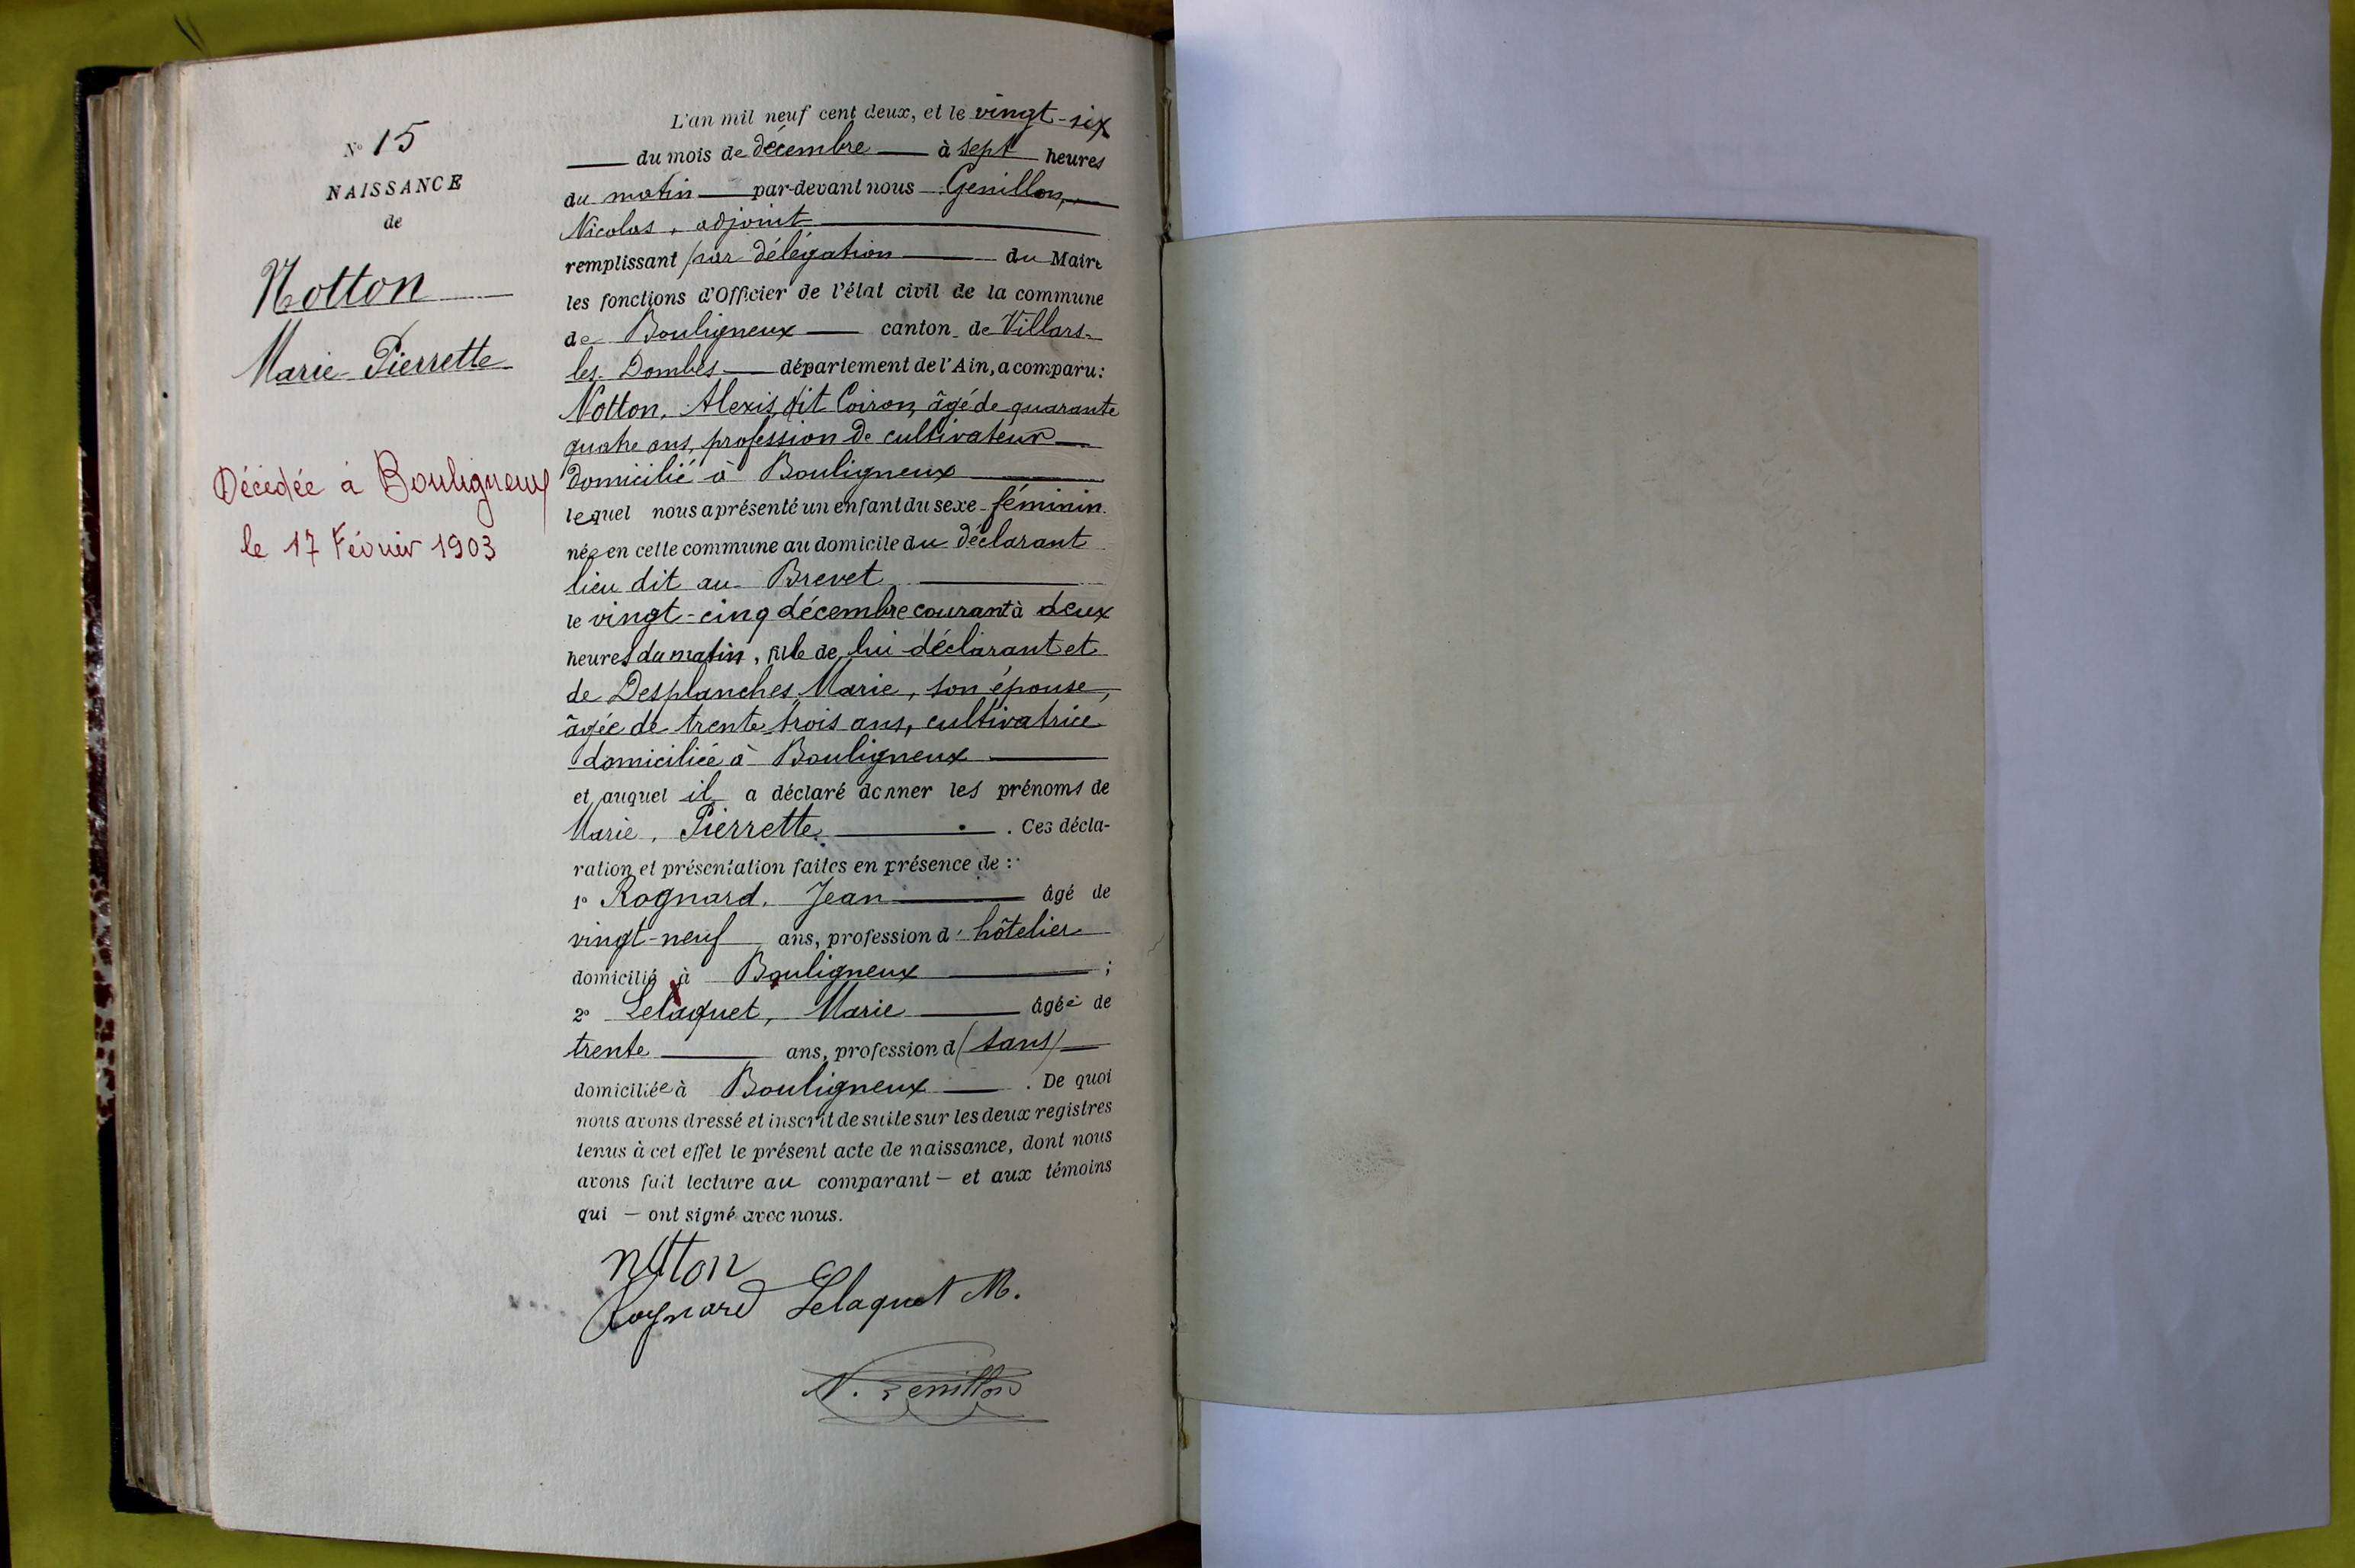 N° 15
NAISSANCE
de
Notton
Marie-Pierrette
Décédée à Bouligneux
le 17 Février 1903
L'an mil neuf cent deux, et le vingt-six
du mois de décembre à sept heures
du matin par-devant nous Genillon,
Nicolas, adjoint
remplissant par délégation du Maire
les fonctions d'Officier de l'état civil de la commune
de Bouligneux canton de Villars-
les Dombes département de l'Ain, a comparu :
Notton, Alexis, dit Coiron, âgé de quarante
quatre ans, profession de cultivateur
domicilié à Bouligneux
lequel nous a présenté un enfant du sexe féminin.
née en cette commune au domicile du déclarant
lieu dit au Brevet
le vingt-cinq décembre courant à deux
heures du matin, fille de lui déclarant et
de Desplanches Marie, son épouse,
âgée de trente trois ans, cultivatrice
domiciliée à Bouligneux
et auquel il a déclaré donner les prénoms de
Marie, Pierrette. . Ces décla-
ration et présentation faites en présence de :
1° Rognard, Jean âgé de
vingt-neuf ans, profession d'hôtelier
domicilié à Bouligneux ;
2° Lelaquet, Marie âgée de
trente ans, profession d (sans)
domiciliée à Bouligneux . De quoi
nous avons dressé et inscrit de suite sur les deux registres
tenus à cet effet le présent acte de naissance, dont nous
avons fait lecture au comparant — et aux témoins
qui — ont signé avec nous.
notton
Rognard Lelaquet M.
N. Genillon